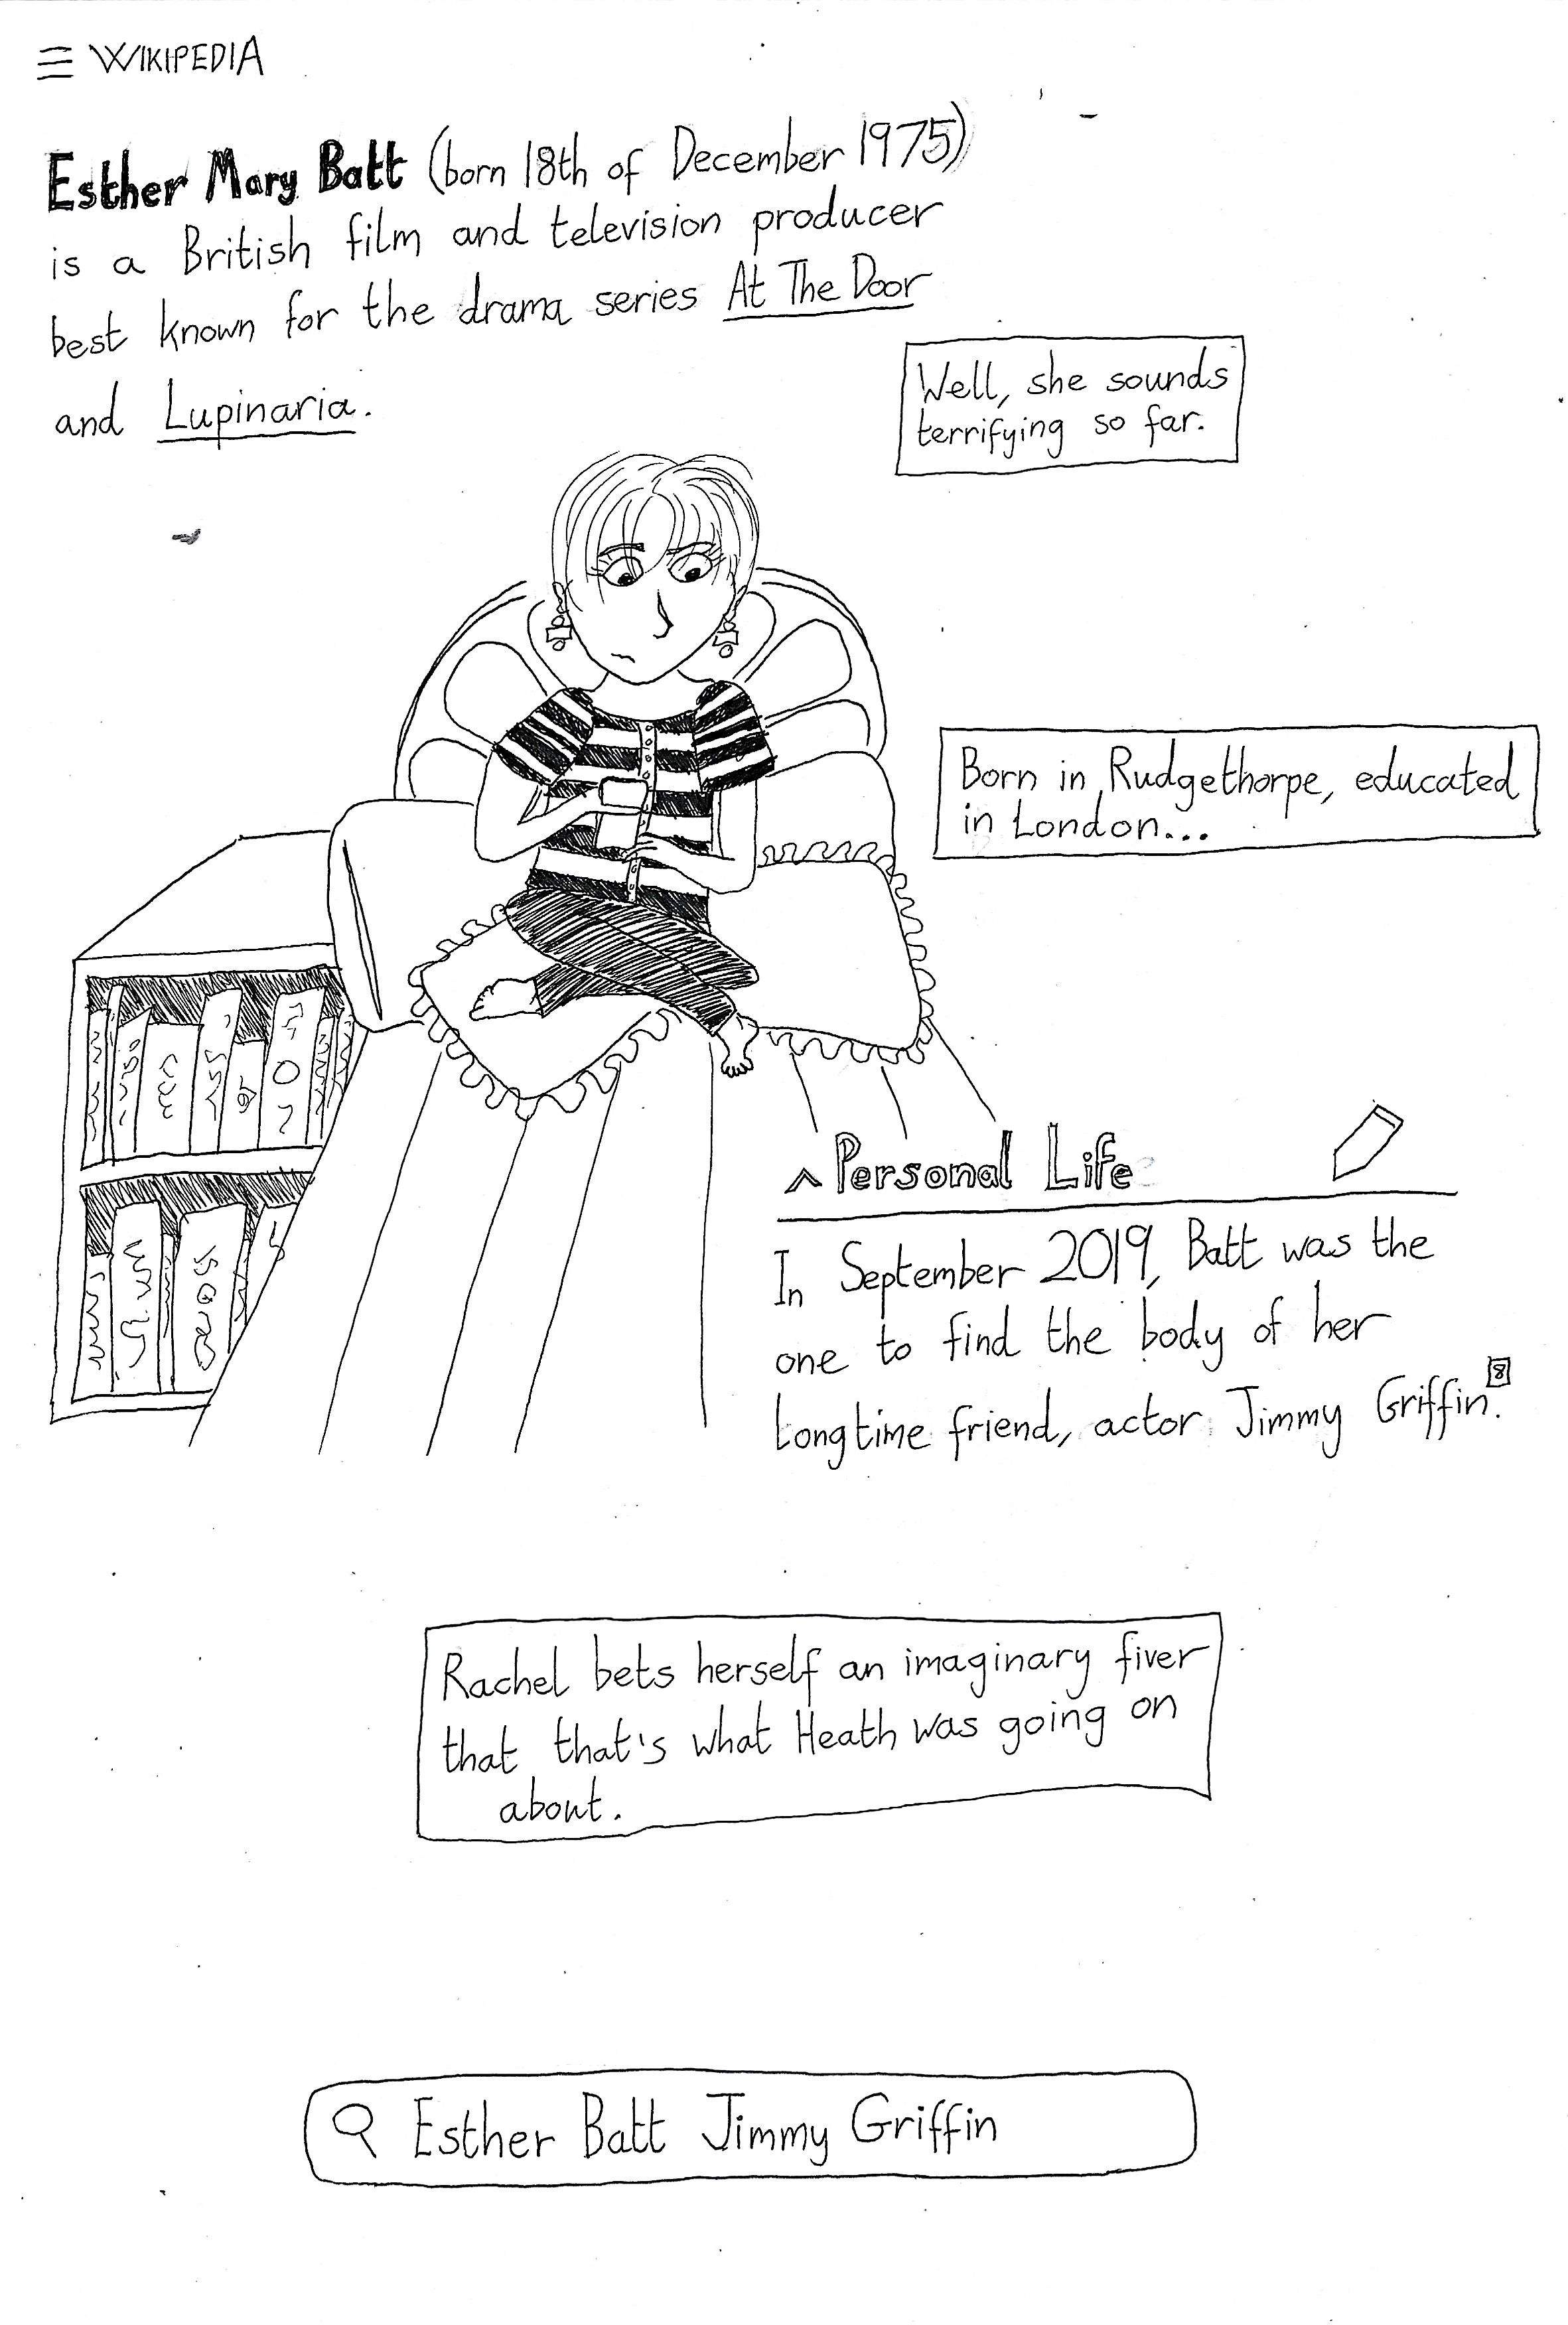 WIKIPEDIA
Esther Mary Batt (born 18th of December 1975)
is a British film and television producer
best known for the drama series At The Door
and Lupinaria.
Well, she sounds
terrifying so far.
Born in Rudgethorpe, educated
in London...
Personal Life
In September 2019, Batt was the
one to find the body of her
longtime friend, actor Jimmy Griffin.[8]
Rachel bets herself an imaginary fiver
that that's what Heath was going on
about.
Esther Batt Jimmy Griffin